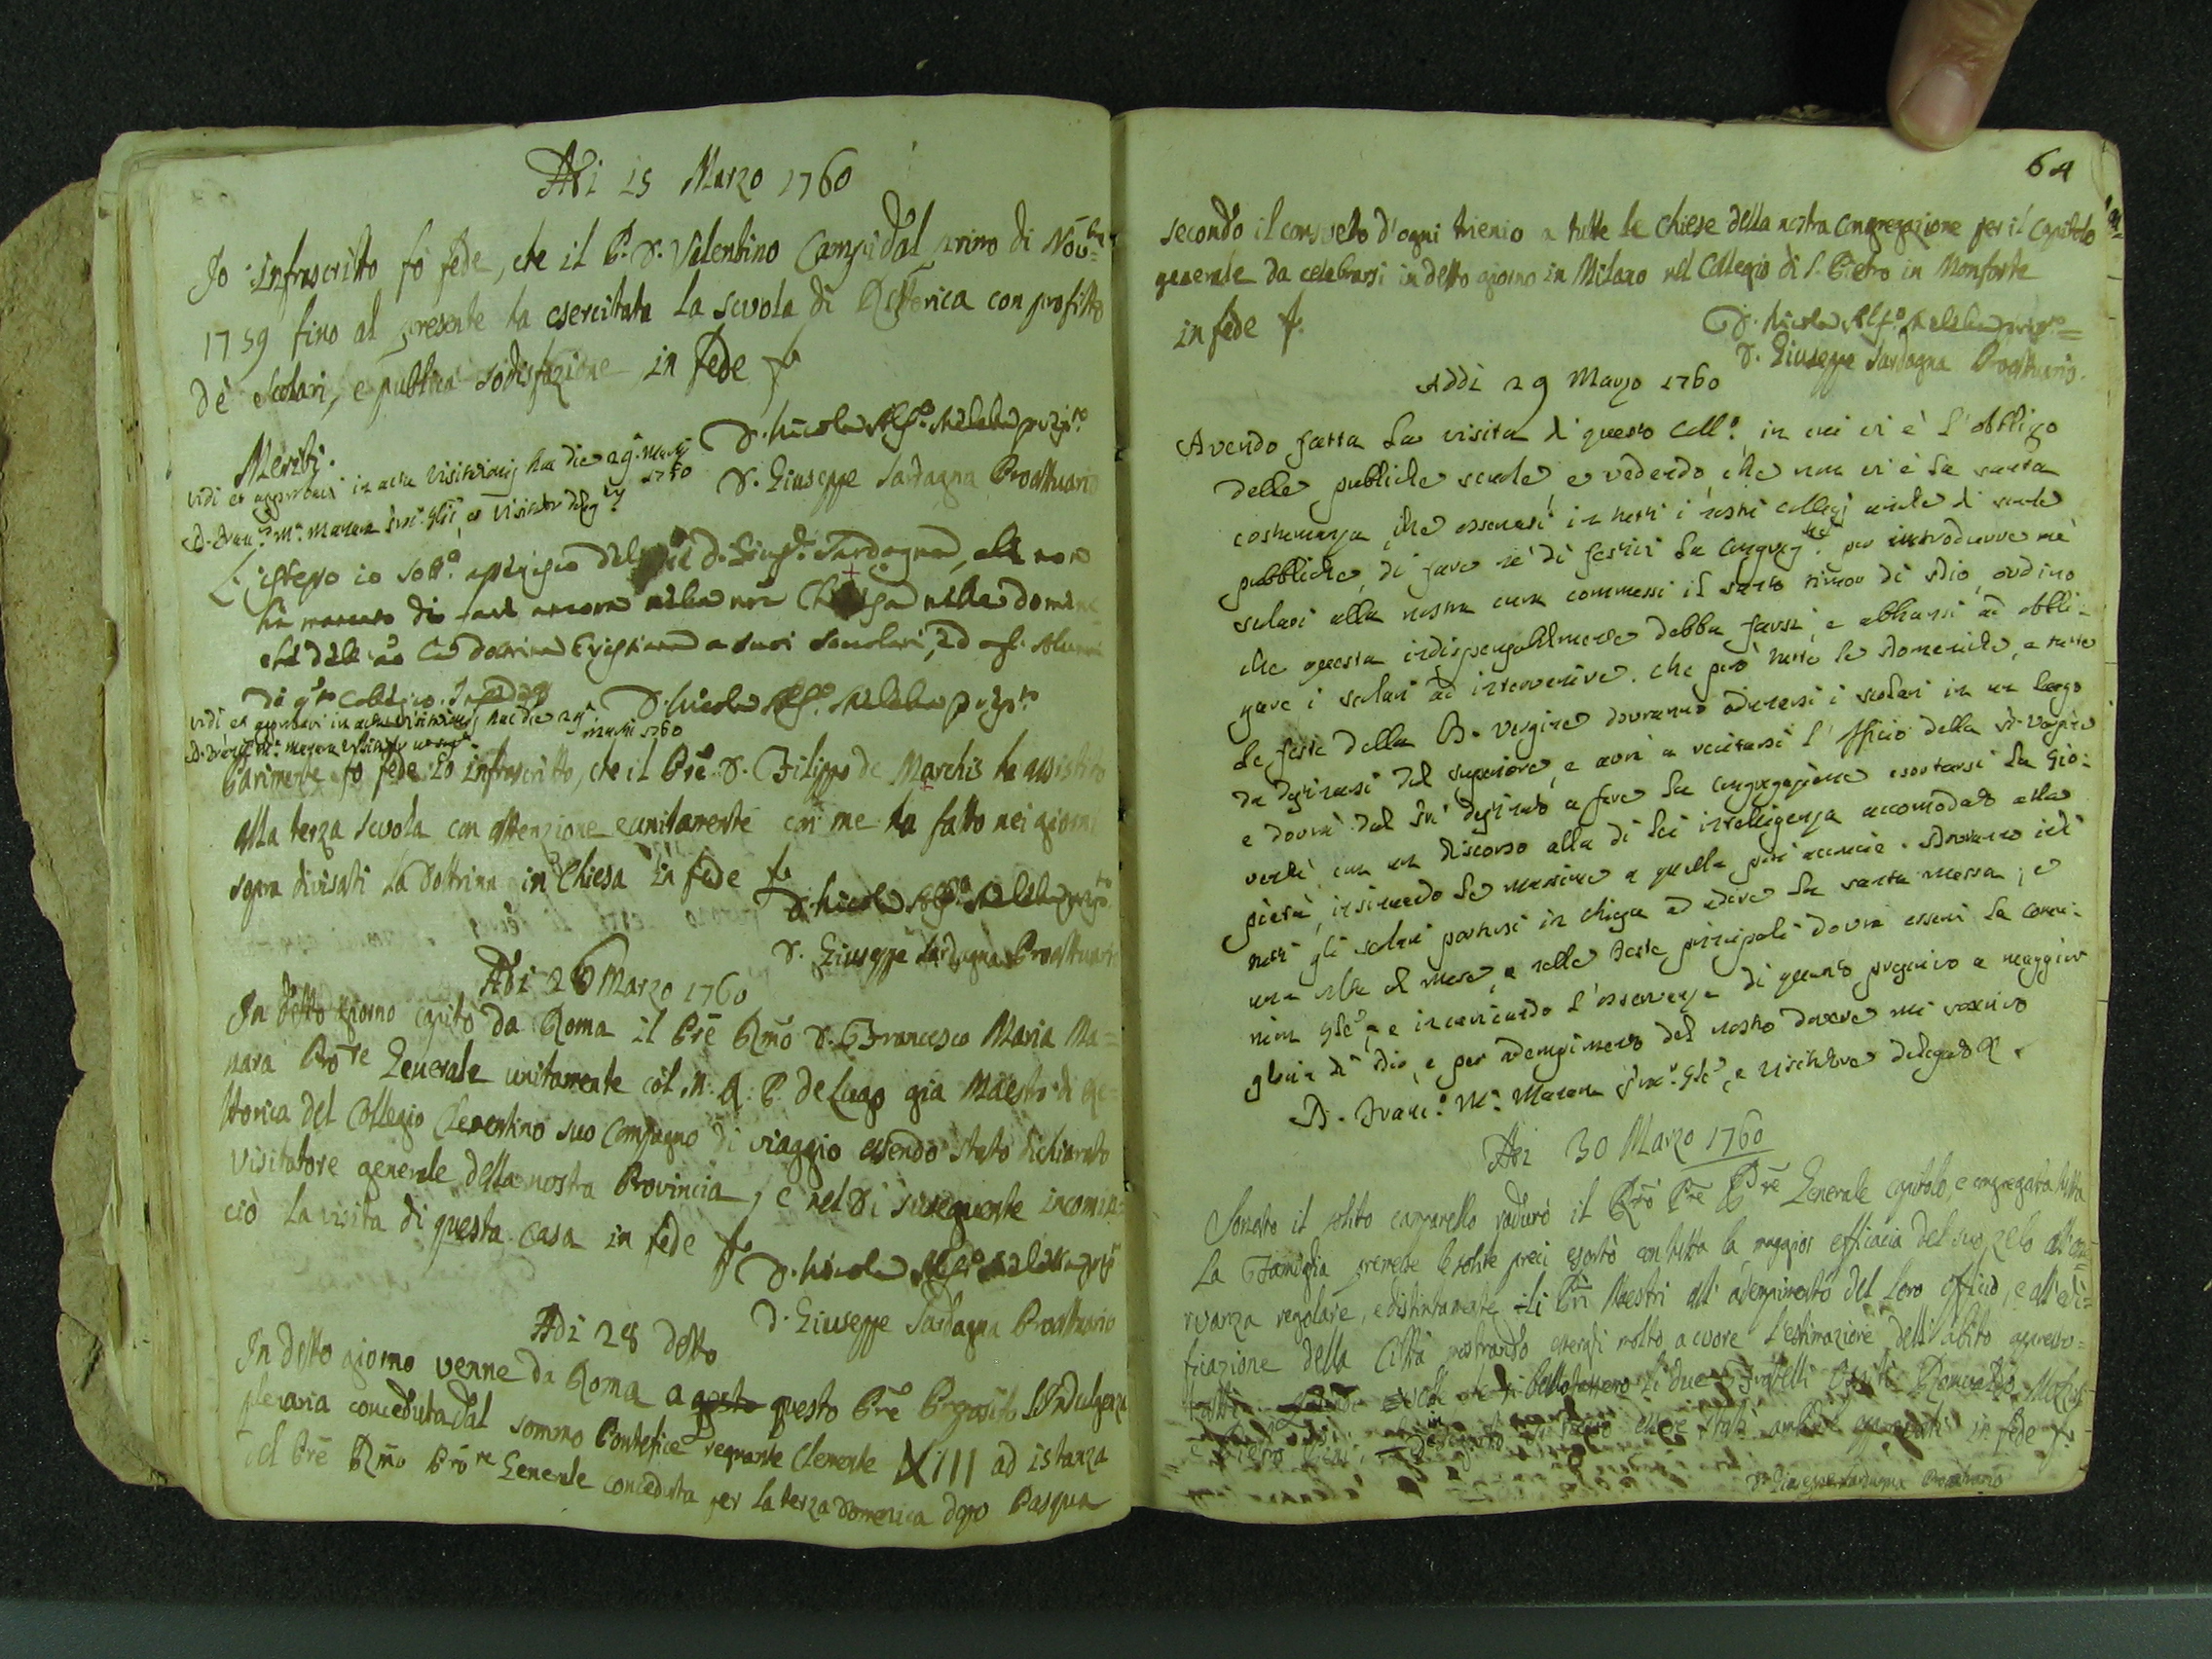 Adi 15 Marzo 1760
Io infrascritto fò fede, che il P. D. Valentino Campi dal primo di Nov.bre
1759 fino al presente ha esercitata la scuola di Rettorica con profitto
de' scolari, e publica sodisfazione in fede
D. Giuseppe Sardagna Proattuario
Vidi et approbavi in actu Visitationis hac die 29 Martij 1760
L'istesso io sott.o D. Sardagna, che non
ha mancato di nelle dome
la dottrina Cristiana a suoi scuolari, ed agl'
di q.sto Collegio. In fede
Vidi et approbavi in actu Visitationis hac die 29 Martii 1760
Parimente fo fede io infrascritto, che il Pre. D. Filippo de Marchis ha assistito
alla terza scuola con attenzione e unitamente con me ha fatto nei giorni
sopra divisati la Dottrina in Chiesa in fede
D. Giuseppe Sardagna Proattuario
Adi 26 Marzo 1760
In detto giorno capitò da Roma il Pre Rmo D. Francesco Maria Ma=
nara Pro.re Generale unitamente col M. R. P. de Lugo già Maestro di Re=
ttorica del Collegio Clementino suo Compagno di viaggio essendo stato dichiarato
Visitatore generale della nostra Provincia, e nel dì susseguente incomin=
ciò la visita di questa casa in fede
D. Giuseppe Sardagna Proattuario
Adi 28 detto
In detto giorno venne da Roma a questo Pre Preposito l'Indulgenza
plenaria conceduta dal sommo Pontefice regnante Clemente XIII ad istanza
del Pre Rmo Pro.re Generale conceduta per la terza Domenica dopo Pasqua
64
secondo il consueto d'ogni trienio a tutte le chiese della nostra Congregazione per il Capitolo
generale da celebrarsi in detto giorno in Milano nel Collegio di S. Pietro in Monforte
in fede
D. Giuseppe Sardagna Proattuario.
Addì 29 Marzo 1760
Avendo fatta la visita di questo Coll.o in cui vi è l'obbligo
delle pubbliche scuole, e vedendo che non vi è la santa
costumanza, che osservasi in tutti i nostri collegj di scuole
pubbliche, di fare ne' dì festivi la congreg.ne per introdurre ne'
scolari alla nostra cura commessi il santo timor di Dio, ordino
che questa indispensabilmente debba farsi, e abbiansi ad obbli-
gare i scolari ad intervenire. Che però tutte le Domeniche, e tutte
le feste della B. Vergine dovranno adunarsi i scolari in un luogo
da destinarsi dal superiore, e avrà a recitarsi l'Officio della B. Vergine
e dovrà dal destinato a fare la congregazione esortarsi la gio-
ventù con un discorso alla di lei intelligenza accomodato alla
pietà, insinuando le massime a quella più acconcie. Dovranno indi
tutti gli scolari portarsi in chiesa ad udire la santa messa; e
una volta al mese, e nelle feste principali dovrà esservi la comu-
nion e incaricando l'osservanza di quanto a maggior
gloria di Dio, e per adempimento del nostro dovere mi
D. Franc.o M.a Manara e visitatore delegato
Adi 30 Marzo 1760
Sonato il solito campanello radunò il Rmo Pre Generale capitolo, e congregata tutta
la Famiglia premesse le solite preci esortò con tutta la maggior efficacia del suo zelo all'osse=
rvanza regolare, e distintamente li Pri Maestri all'adempimento del loro officio, e all'edi=
ficazione della Città mostrando essergli molto a cuore l'estimazione dell'abito appresso
tutti. li due Fratelli
in fede
D. Giuseppe Sardagna Proattuario